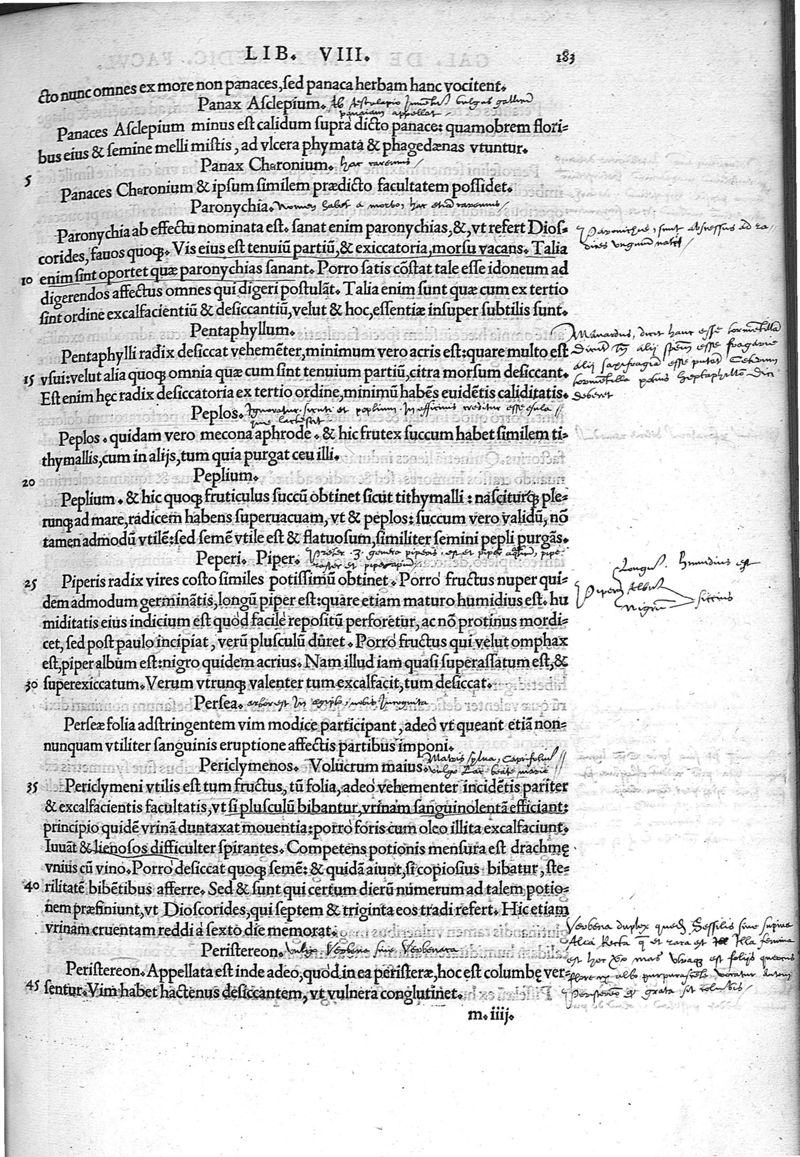 LIB. VIII. 183
cto nunc omnes ex more non panaces, sed panaca herbam hanc vocitent.
Panax Asclepium. Ab vulgus
appellat
Panaces Asclepium minus est calidum supra dicto panace: quamobrem flori-
bus eius & semine melli mistis, ad vlcera phymata & phagedænas vtuntur.
Panax Chæronium. hac caremus
5 Panaces Chæronium & ipsum similem prædicto facultatem possidet.
Paronychia. Nomen habet a morbo, hac etiam caremus
Paronychia ab effectu nominata est. sanat enim paronychias, &, vt refert Dios-
corides, fauos quoq;. Vis eius est tenuiũ partiũ, & exiccatoria, morsu vacans. Talia
10 enim sint oportet quæ paronychias sanant. Porro satis cõstat tale esse idoneum ad
digerendos affectus omnes qui digeri postulãt. Talia enim sunt quæ cum ex tertio
sint ordine excalfacientiũ & desiccantiũ, velut & hoc, essentiæ insuper subtilis sunt.
Paronichiæ, sunt absessus ad ra-
dices unguium nati
Pentaphyllum.
Pentaphylli radix desiccat vehemẽter, minimum vero acris est: quare multo est
15 vsui: velut alia quoq; omnia quæ cum sint tenuium partiũ, citra morsum desiccant.
Est enim hęc radix desiccatoria ex tertio ordine, minimũ habẽs euidẽtis caliditatis.
Manardus, dicit hanc esse tormentilla
alij esse fragarie
alij saxifragia esse putant
tormentilla potius Heptaphillon dici
deberet
Peplos. Ignoratur et peplium. In officinis creditur esse esula
Peplos. quidam vero mecona aphrode. & hic frutex succum habet similem ti-
thymallis, cum in alijs, tum quia purgat ceu illi.
20 Peplium.
Peplium. & hic quoq; fruticulus succũ obtinet sicut tithymalli: nasciturq; ple-
runq; ad mare, radicem habens superuacuam, vt & peplos: succum vero validũ, nõ
tamen admodũ vtilẽ: sed semẽ vtile est & flatuosum, similiter semini pepli purgãs.
Peperi. Piper. 3. genera piperis, est et piper
25 Piperis radix vires costo similes potissimũ obtinet. Porro fructus nuper qui-
dẽm admodum germinãtis, longũ piper est: quare etiam maturo humidius est. hu
miditatis eius indicium est quod facile repositũ perforetur, ac nõ protinus mordi-
cet, sed post paulo incipiat, verũ plusculũ dũret. Porro fructus qui velut omphax
est, piper album est: nigro quidem acrius. Nam illud iam quasi superassatum est, &
30 superexiccatum. Verum vtrunq; valenter tum excalfacit, tum desiccat.
Longum. Humidius est
Piper Album
Nigrum siccius
Persea. arbor est In Aegipto, nobis Incognita
Perseæ folia adstringentem vim modice participant, adeo vt queant etiã non-
nunquam vtiliter sanguinis eruptione affectis partibus imponi.
Periclymenos. Volucrum maius. Matris sylua, Caprifolium
vulgo
35 Periclymeni vtilis est tum fructus, tũ folia, adeo vehementer incidẽtis pariter
& excalfacientis facultatis, vt si plusculũ bibantur, vrinam sanguinolentã efficiant:
principio quidẽ vrinã duntaxat mouentia: porro foris cum oleo illita excalfaciunt.
Iuuãt & lienosos difficulter spirantes. Competens potionis mensura est drachmę
vnius cũ vino. Porro desiccat quoq; semẽ: & quidã aiunt, si copiosius bibatur, ste-
40 rilitatẽ bibẽtibus afferre. Sed & sunt qui certum dierũ numerum ad talem potio-
nem præfiniunt, vt Dioscorides, qui septem & triginta eos tradi refert. Hic etiam
vrinam cruentam reddi a sexto die memorat.
Peristereon. vulgo Verbena siue Verbenaca
Peristereon. Appellata est inde adeo, quod in ea peristeræ, hoc est columbę ver-
45 sentur. Vim habet hactenus desiccantem, vt vulnera conglutinet.
Verbena duplex quedam Sessilis siue supina
Alia Recta et rara et Illa femina
est hec mas est folijs quernis
flore albo purpurascente vocatur
Peristereon grata sit columbis
m. iiij.